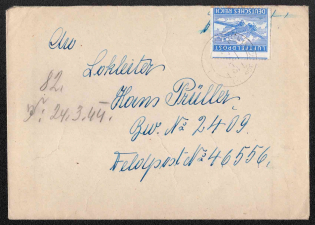 DEUTSCHES REICH
LUFTFELDPOST
An
Lokleiter
Hans Prüller
Zw. No 2409.
Feldpost No 46556.
82.
24.3.44.